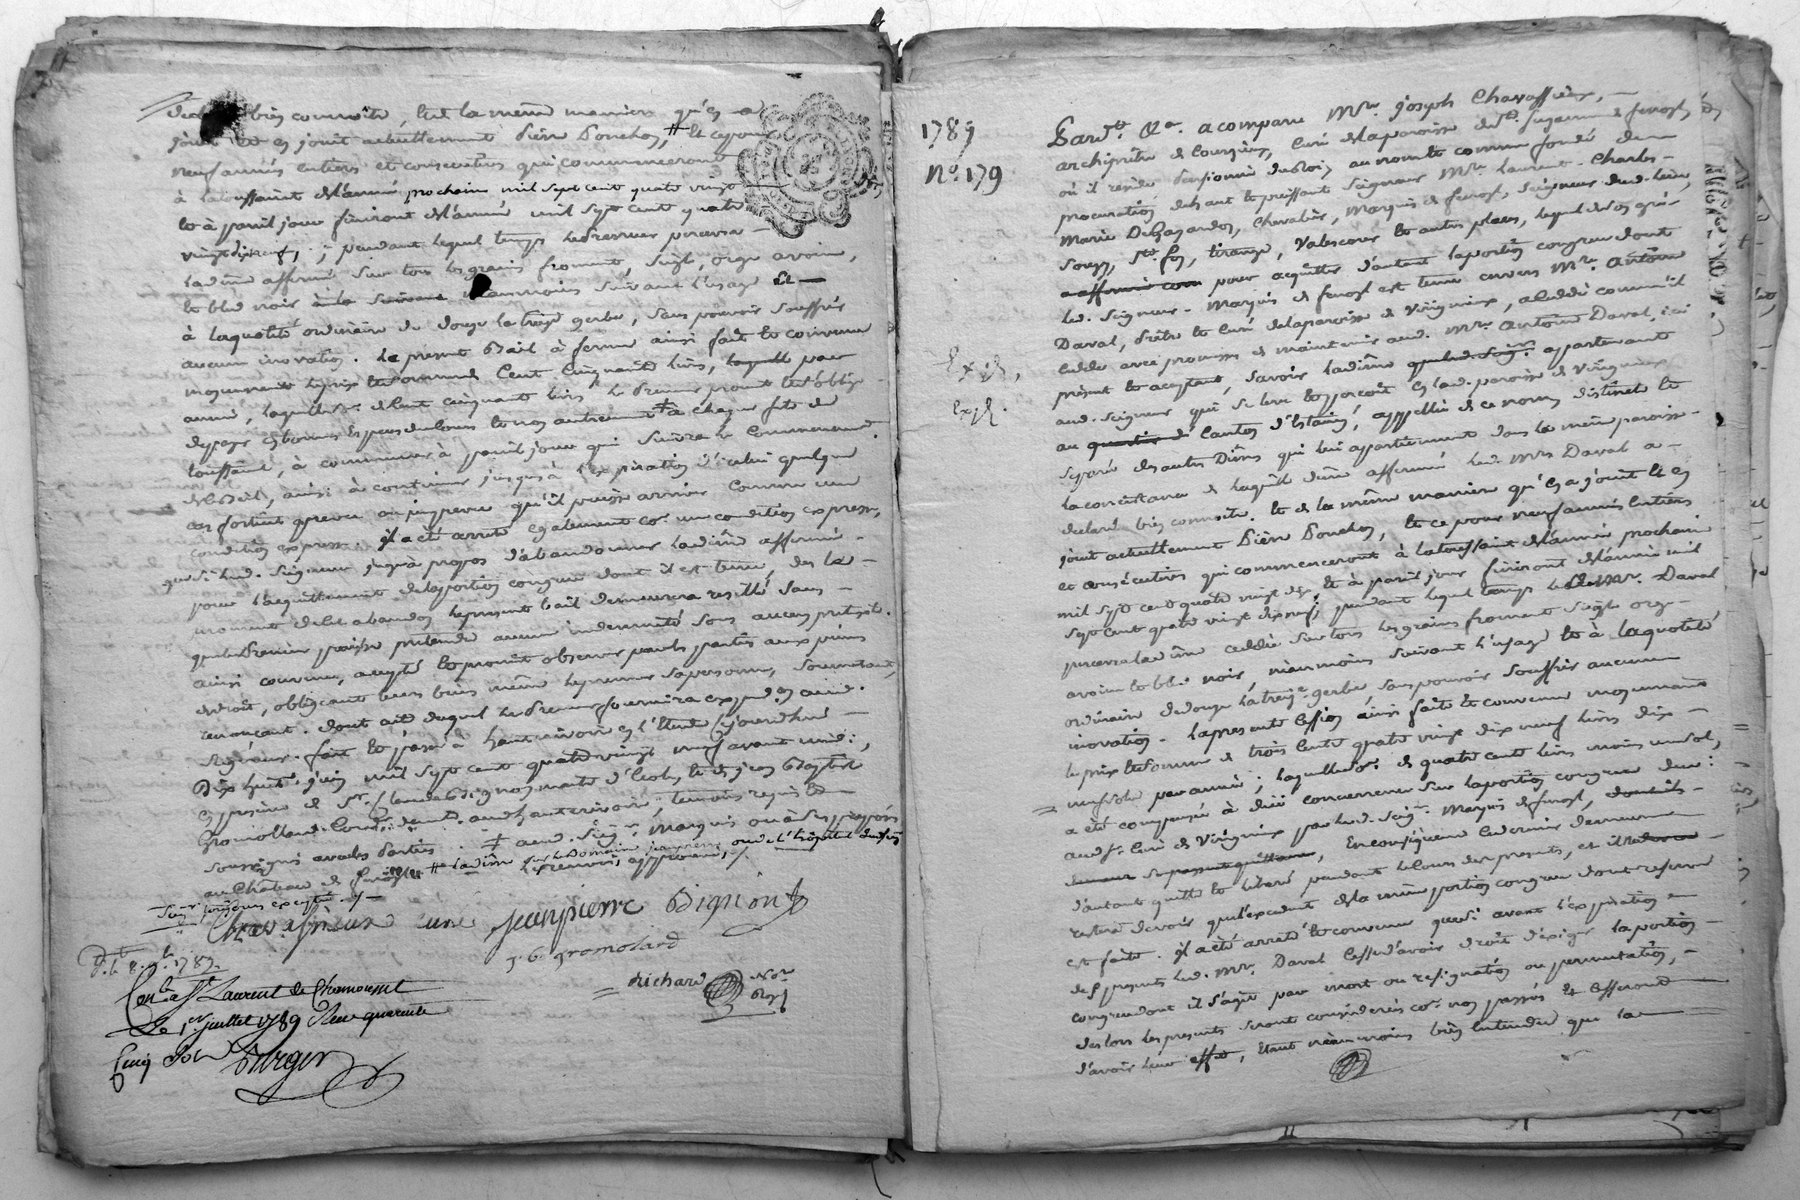 bien connoitre, et de la même maniere qu'en a
jouit et en jouit actuellement Pierre Ponchon, # et ce pour
neuf années entieres et consecutives qui commenceront
à la toussaint de l'année prochaine mil sept cent quatre vingt
et à pareil jour finiront de l'année mil sept cent quatre
vingt dix neuf; pendant lequel temps le preneur percevra
la dîme affermé sur tous les grains froment, seigle, orge avoine,
et bled noir neanmoins suivant l'usage et
à la quotité ordinaire de douze la treize gerbe, sans pouvoir souffrir
aucune inovation. Le present bail à ferme ainsi fait et convenu
moyennant le prix et somme Cent Cinquante livres, par
année, laquelle de Cent cinquante livres le Preneur promet et s'oblige
de payer en bonnes Especes de cours et non autrement à chaque fête de
toussaint, à commencer à pareil jour qui suivra le Commencement
du bail, ainsi à continuer jusqu'à l'expiration d'icelui quelque
cas fortuit prevu ou impreveu qu'il puisse arriver Comme une
condition expresse. il a été arreté egalement co. une condition expresse,
que si led. Seigneur jugeà propos d'abandonner la dîme affermé
pour l'acquittement de la portion congrue dont il est tenu, des le
moment dudit abandon le present bail demeurera resillé sans
que le Preneur puisse pretendre aucune indemnité sous aucun pretexte.
ainsi convenu, accepté et promit observer par les parties aux peines
de droit, obligeant leurs biens même le preneur sa personne, soumettant,
renonçant. dont acte duquel le Preneur fournira exped. en aud.
Seigneur. fait et passé à hauterivoire en l'Etude, ce jourdhui
Dix huit. juin mil sept cent quatre vingt neuf avant midi,
En presence de Sr. Claude Bignon maitre d'Ecole, et de jean Baptiste
Gromolland Cord. demt. aud. hauterivoire, temoins requis
soussignés avec les Parties. ‡ aud. Seigr. Marquis ou à ses preposés
au Château de
Chavassieux curé jeanpierre Bignion
j. b. gromolard
Richard Nore
Royl
Con. a St. Laurent de Chamousset
Le 1er. juillet 1789 Recu quarente
Cinq sols Burger
1789
No. 179
Pardt. &a. a comparu Mre. Joseph Chavassieux,
archiprêtre de Courzieux, Curé de la paroisse
où il reside Pensionné du Roi, au nom et comme fondé de
procuration de haut et puissant Seigneur Mre. Laurent-Charles-
Marie Chevalier, Marquis de ferost, Seigneur dud. lieu,
Souzy, Ste. foy, tirange, Valescour et autres places, lequel de son gré
pour acquitter d'autant la portion congrue dont
led. Seigneur Marquis de ferost est tenu envers Mre. Antoine
Daval, Prêtre et Curé de la paroisse de Virigneux, a Cedé comme il
Cedde avec promesse de maintenir aud. Mre. Antoine Daval, ici
présent et acceptant, savoir la dîme appartenant
aud. Seigneur qui se leve et perçoit en lad. paroisse de Virigneux
au Canton d'Estaing, appellée de ce nom, distincte et
separée des autres Dîmes qui lui appartiennent dans la même paroisse
la consistance de laquelle dîme affermé led. Mre Daval a
declaré bien connoitre. et de la même maniere qu'en a jouit et en
jouit actuellement Pierre Ponchon, et ce pour neuf années entieres
et consécutives qui commenceront à la toussaint de l'année prochaine
mil sept cent quatre vingt dix, et à pareil jour finiront de l'année mil
sept cent quatre vingt dix neuf; pendant lequel temps led. Mr. Daval
percevra la dîme ceddée sur tous les grains froment seigle orge
avoine et bled noir, neanmoins suivant l'usage et à la quotité
ordinaire de douze la treize gerbe, sans pouvoir souffrir aucune
inovation. la presente Cession ainsi faite et convenue moyennant
le prix et somme de trois Cents quatre vingt dix neuf livres dix
neuf sols par année; laquelle de quatre cent livres moins un sol,
a été compensée à due concurrence sur la portion congrue due
aud. Sr. Curé de Virigneux par led. Seigr. Marquis de ferost,
Enconséquence ce dernier demeure
d'autant quitte et liberé pendant le Cours des presentes, et il
restera devoir que l'excedent de la même portion congrue dont reserve
est faite. il a été arreté et convenu que si avant l'expiration
des presentes led. Mr. Daval Cesse d'avoir droit d'exiger la portion
congrue dont il s'agit par mort ou resignation ou permutation,
des lors les presentes seront considerées co. non passées et Cesseront
d'avoir leur effet, étant neanmoins bien entendu que la